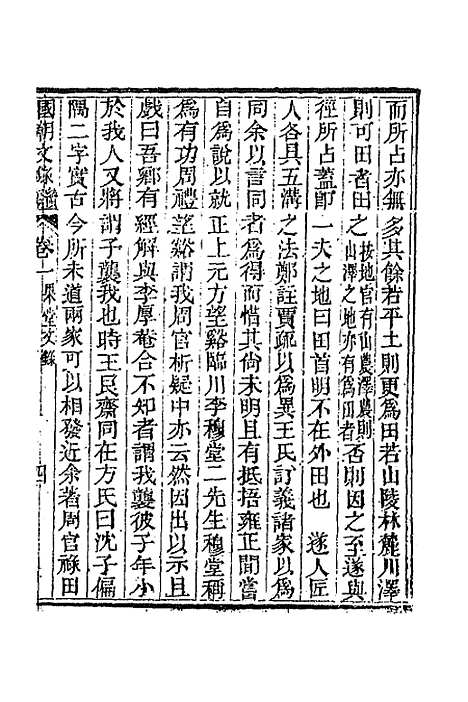 而所占亦無多其餘若平土則更為田若山陵林麓川澤
則可田者田之按地官有山農澤農則山澤之地亦有為田者否則因之至遂與
徑所占蓋即一夫之地曰田首明不在外田也　遂人匠
人各具五溝之法鄭註賈疏以為異王氏訂義諸家以為
同余以言同者為得而惜其尚未明且有抵捂雍正間嘗
自為說以就正上元方望谿臨川李穆堂二先生穆堂稱
為有功周禮望谿謂我周官析疑中亦云然因出以示且
戲曰吾鄉有經解與李厚菴合不知者謂我襲彼子年小
於我人又將謂子襲我也時王艮齋同在方氏曰沈子偏
隅二字實古今所未道兩家可以相發近余著周官祿田
國朝文錄續　卷一　果堂文錄　四